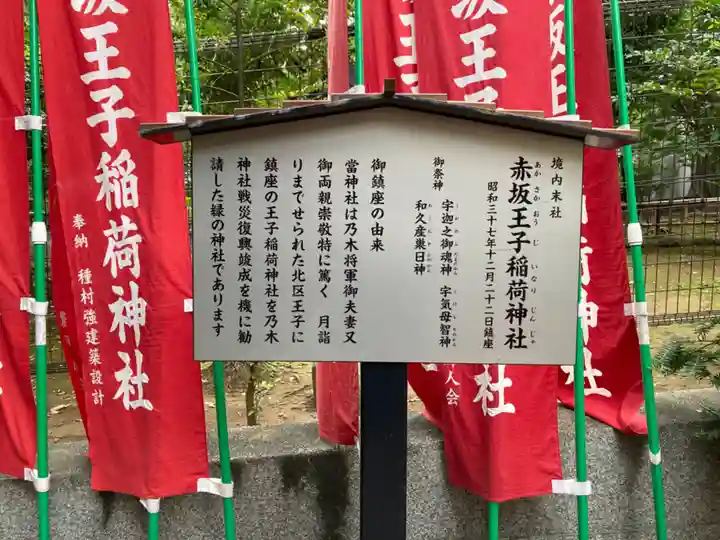 境内末社
赤坂王子稲荷神社
あかさかおうじいなりじんじゃ
昭和三十七年十二月二十二日鎮座
御祭神
宇迦之御魂神 宇気母智神
和久産巣日神
御鎮座の由来
當神社は乃木将軍御夫妻又
御両親崇敬特に篤く 月詣
りまでせられた北区王子に
鎮座の王子稲荷神社を乃木
神社戦災復興竣成を機に勧
請した縁の神社であります
赤坂王子稲荷神社
奉納 種村強建築設計
坂王子稲荷神社